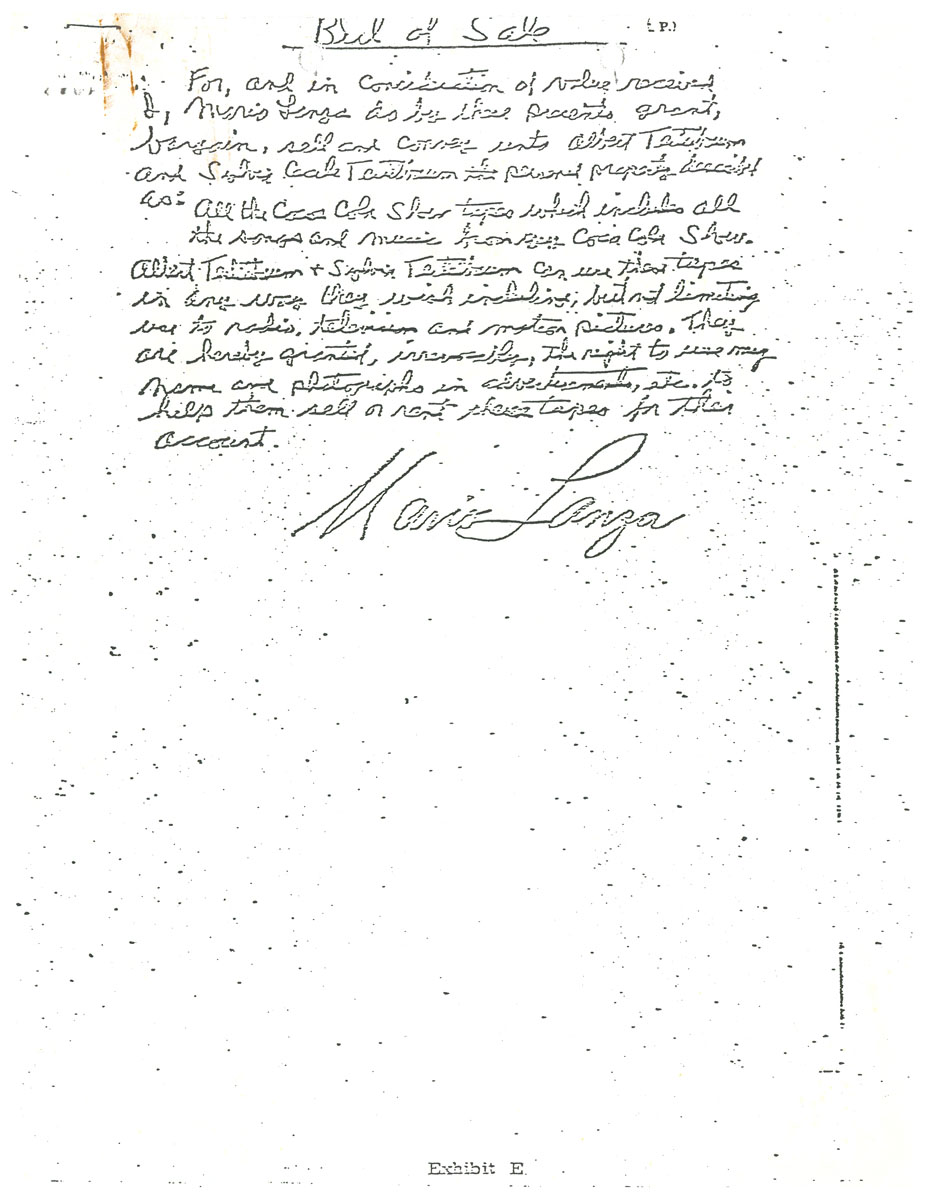 Bill of Sale
(P.)
For, and in Consideration of value received
I, Mario Lanza do by these presents grant,
bargain, sell and convey unto Albert Teitelbaum
and Sylvia Teitelbaum the personal property described
as:
All the Coca Cola Show tapes which includes all
the songs and music from my Coca Cola Show.
Albert Teitelbaum + Sylvia Teitelbaum can use these tapes
in any way they wish including, but not limiting
use to radio, television and motion pictures. They
are hereby granted, irrevocably, the right to use my
name and photographs in advertisements, etc. to
help them sell or rent these tapes for their
account.
Mario Lanza
Exhibit E